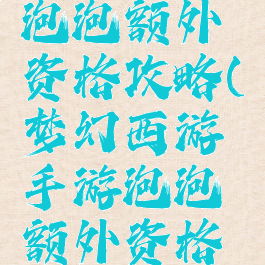 泡泡额外
资格攻略(
梦幻西游
手游泡泡
额外资格